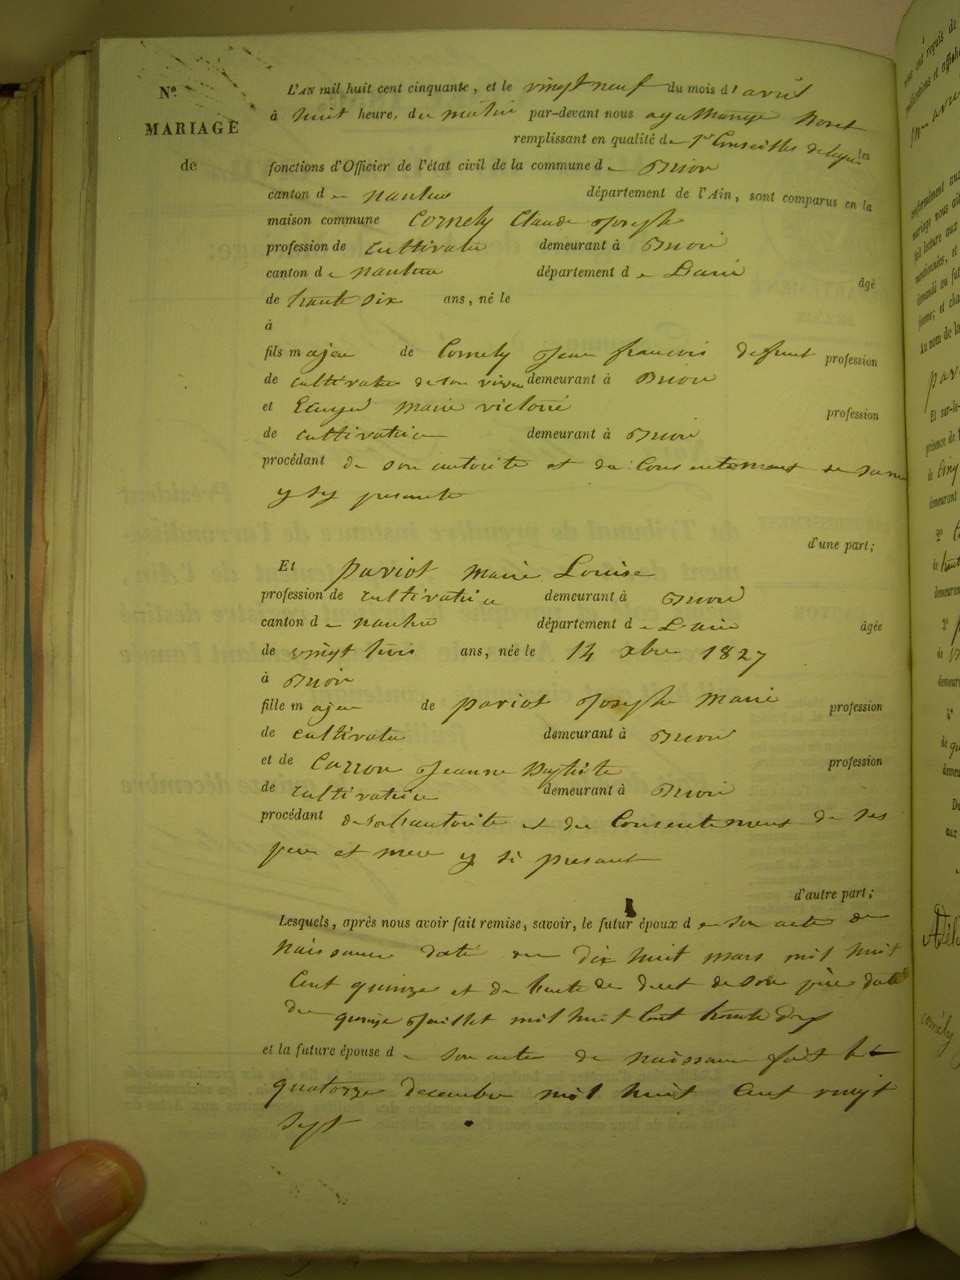 N.°
MARIAGE
de
L'AN mil huit cent cinquante, et le vingt neuf du mois d'avril
à huit heure, du matin par-devant nous
remplissant en qualité de 1er Conseiller
fonctions d'Officier de l'état civil de la commune de Brion
canton de nantua département de l'Ain, sont comparus en la
maison commune Cornely Claude Joseph
profession de cultivateur demeurant à Brion
canton de nantua département de L'ain âgé
de trente six ans, né le
à
fils majeur de Cornely Jean françois defunt profession
de cultivateur de son vivant demeurant à Brion
et marie victoire profession
de cultivatrice demeurant à Brion
procédant de son autorité et du Consentement de sa mere
y si presente
d'une part;
Et pariot Marie Louise
profession de cultivatrice demeurant à Brion
canton de nantua département de L'ain âgée
de vingt trois ans, née le 14 xbre 1827
à Brion
fille majeure de pariot Joseph Marie profession
de cultivateur demeurant à Brion
et de Carron Jeanne Baptiste profession
de cultivatrice demeurant à Brion
procédant de son hautorité et du Consentement de ses
pere et mere y si presant
d'autre part;
Lesquels, après nous avoir fait remise, savoir, le futur époux de son acte de
naissance daté du dix huit mars mil huit
Cent quinze et de l'acte de deces de son père daté
du quinze Juillet mil huit Cent trente
et la future épouse de son acte de naissance fait le
quatorze decembre mil huit Cent vingt
sept